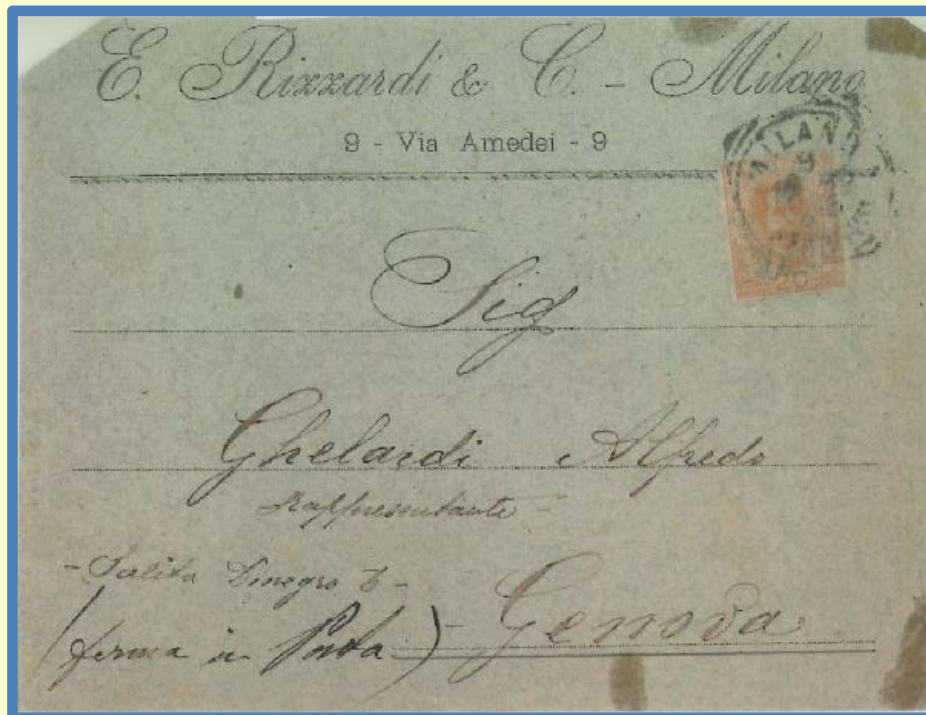 E. Rizzardi & C. - Milano
9 - Via Amedei - 9
MILANO
9
20
Sig
Ghelardi Alfredo
Rappresentante -
- Salita Dinegro 6 -
(ferma in Posta) - Genova